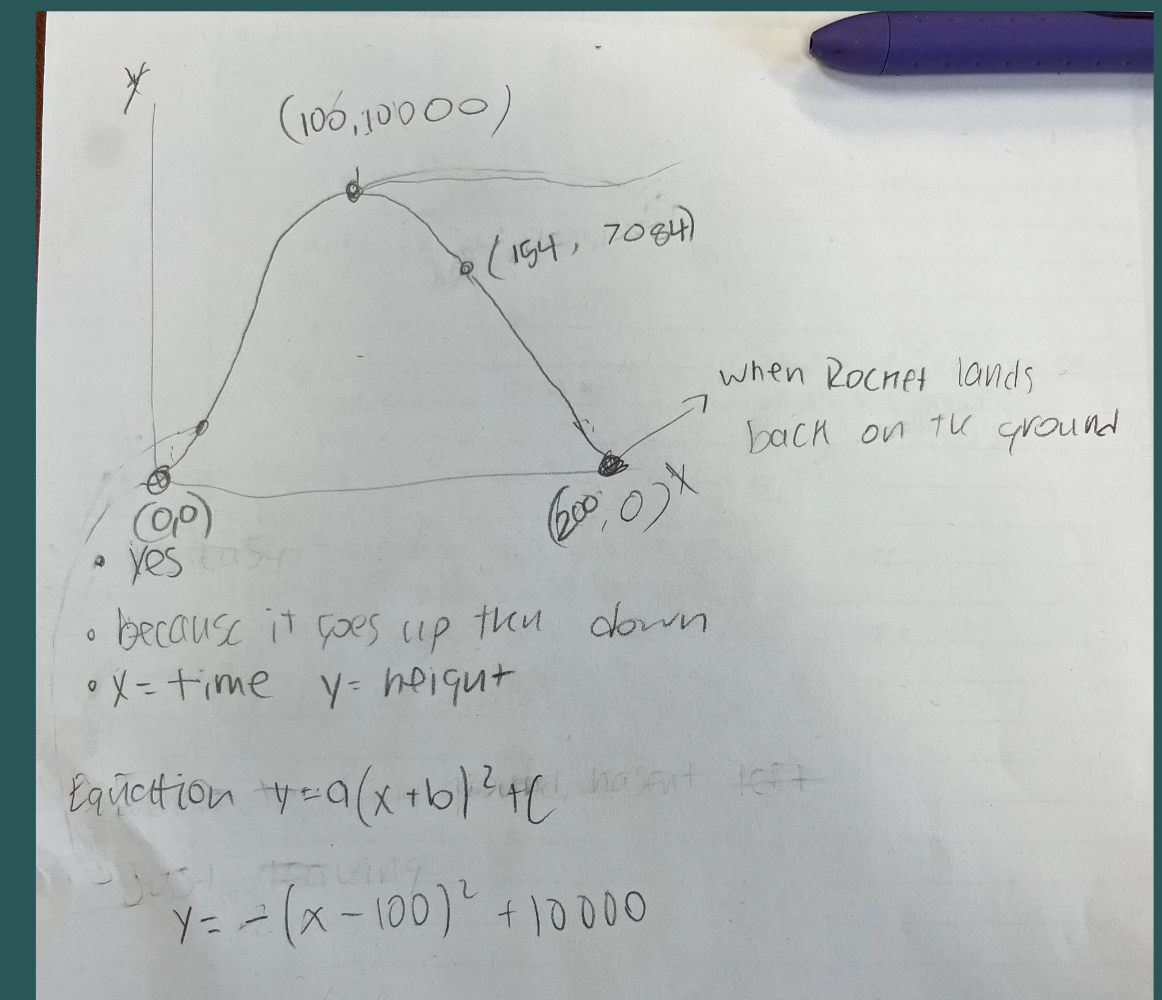 y
(100,10000)
(154, 7084)
when Rocket lands
back on the ground
(0,0)
(200, 0) x
• yes
• because it goes up then down
• x = time y = height
Equation y = a(x+b)² + c
y = -(x - 100)² + 10000